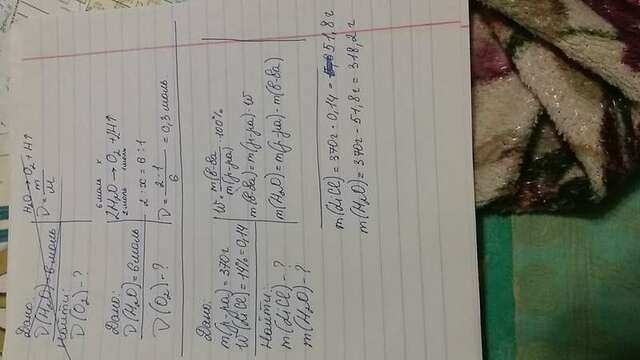 Дано:
D(H₂O)=6 моль
Найти:
D(O₂)-?
H₂O → O₂+H↑
D = m/M
Дано:
D(H₂O)=6моль
D(O₂)-?
6 моль x
2H₂O → O₂ + 2H↑
2 моль 1 моль
2·x = 6:1
D = 2·1/6 = 0,3 моль
Дано:
m(р-ра)=370г
W(LiCl)=14%=0,14
Найти:
m(LiCl)-?
m(H₂O)-?
W= m(в-ва)/m(р-ра) ·100%
m(в-ва)=m(р-ра)·W
m(H₂O)=m(р-ра)-m(в-ва)
m(LiCl)=370г·0,14= 51,8г
m(H₂O)=370г-51,8г=318,2г